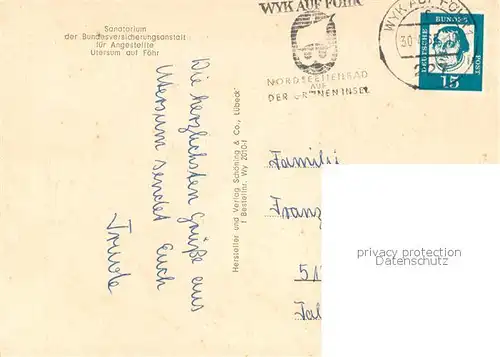 Sanatorium
der Bundesversicherungsanstalt
für Angestellte
Utersum auf Föhr
WYK AUF FÖHR
NORDSEEHEILBAD
AUF
DER GRÜNEN INSEL
WYK AUF FÖHR
30
DEUTSCHE
BUNDES
POST
15
Die herzlichsten Grüße aus
Utersum sendet Euch
Trude
Hersteller und Verlag Schöning & Co., Lübeck
Bestellnr. Wy 2010-f
Famili
Franz
51
privacy protection
Datenschutz